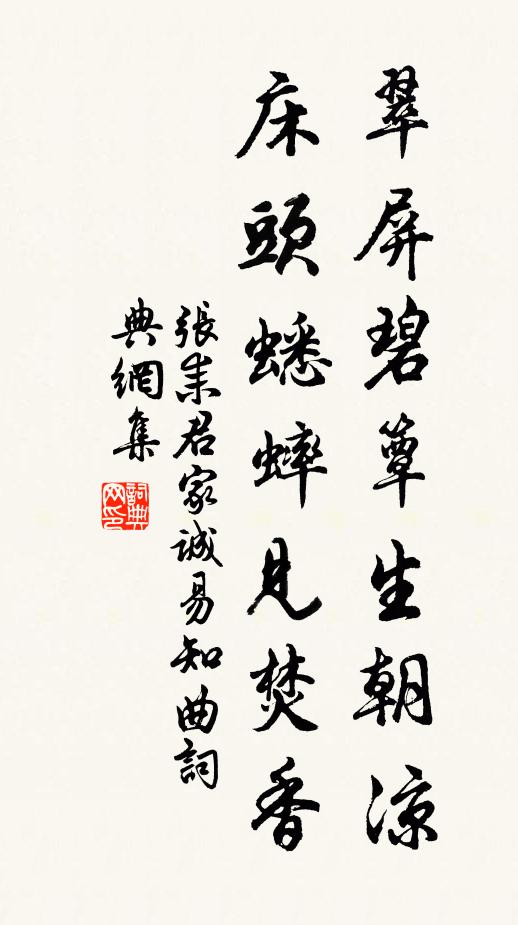 翠屏碧簟生朝涼
床頭蟋蟀見焚香
張耒君家誠易知曲詞
典網集
詞典
网印